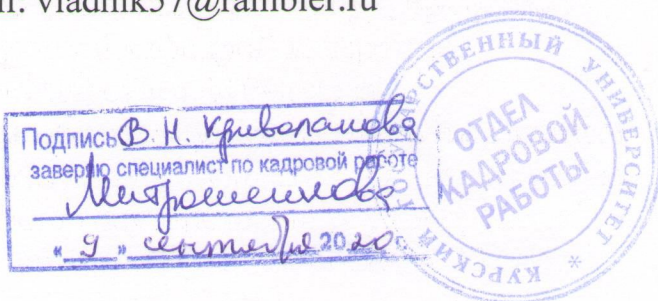 n: vladnik57@rambler.ru
Подпись В. Н. Криволапова
заверяю специалист по кадровой работе
Митрошенкова
« 9 » сентября 2020 г.
КУРСКИЙ ГОСУДАРСТВЕННЫЙ УНИВЕРСИТЕТ *
ОТДЕЛ
КАДРОВОЙ
РАБОТЫ